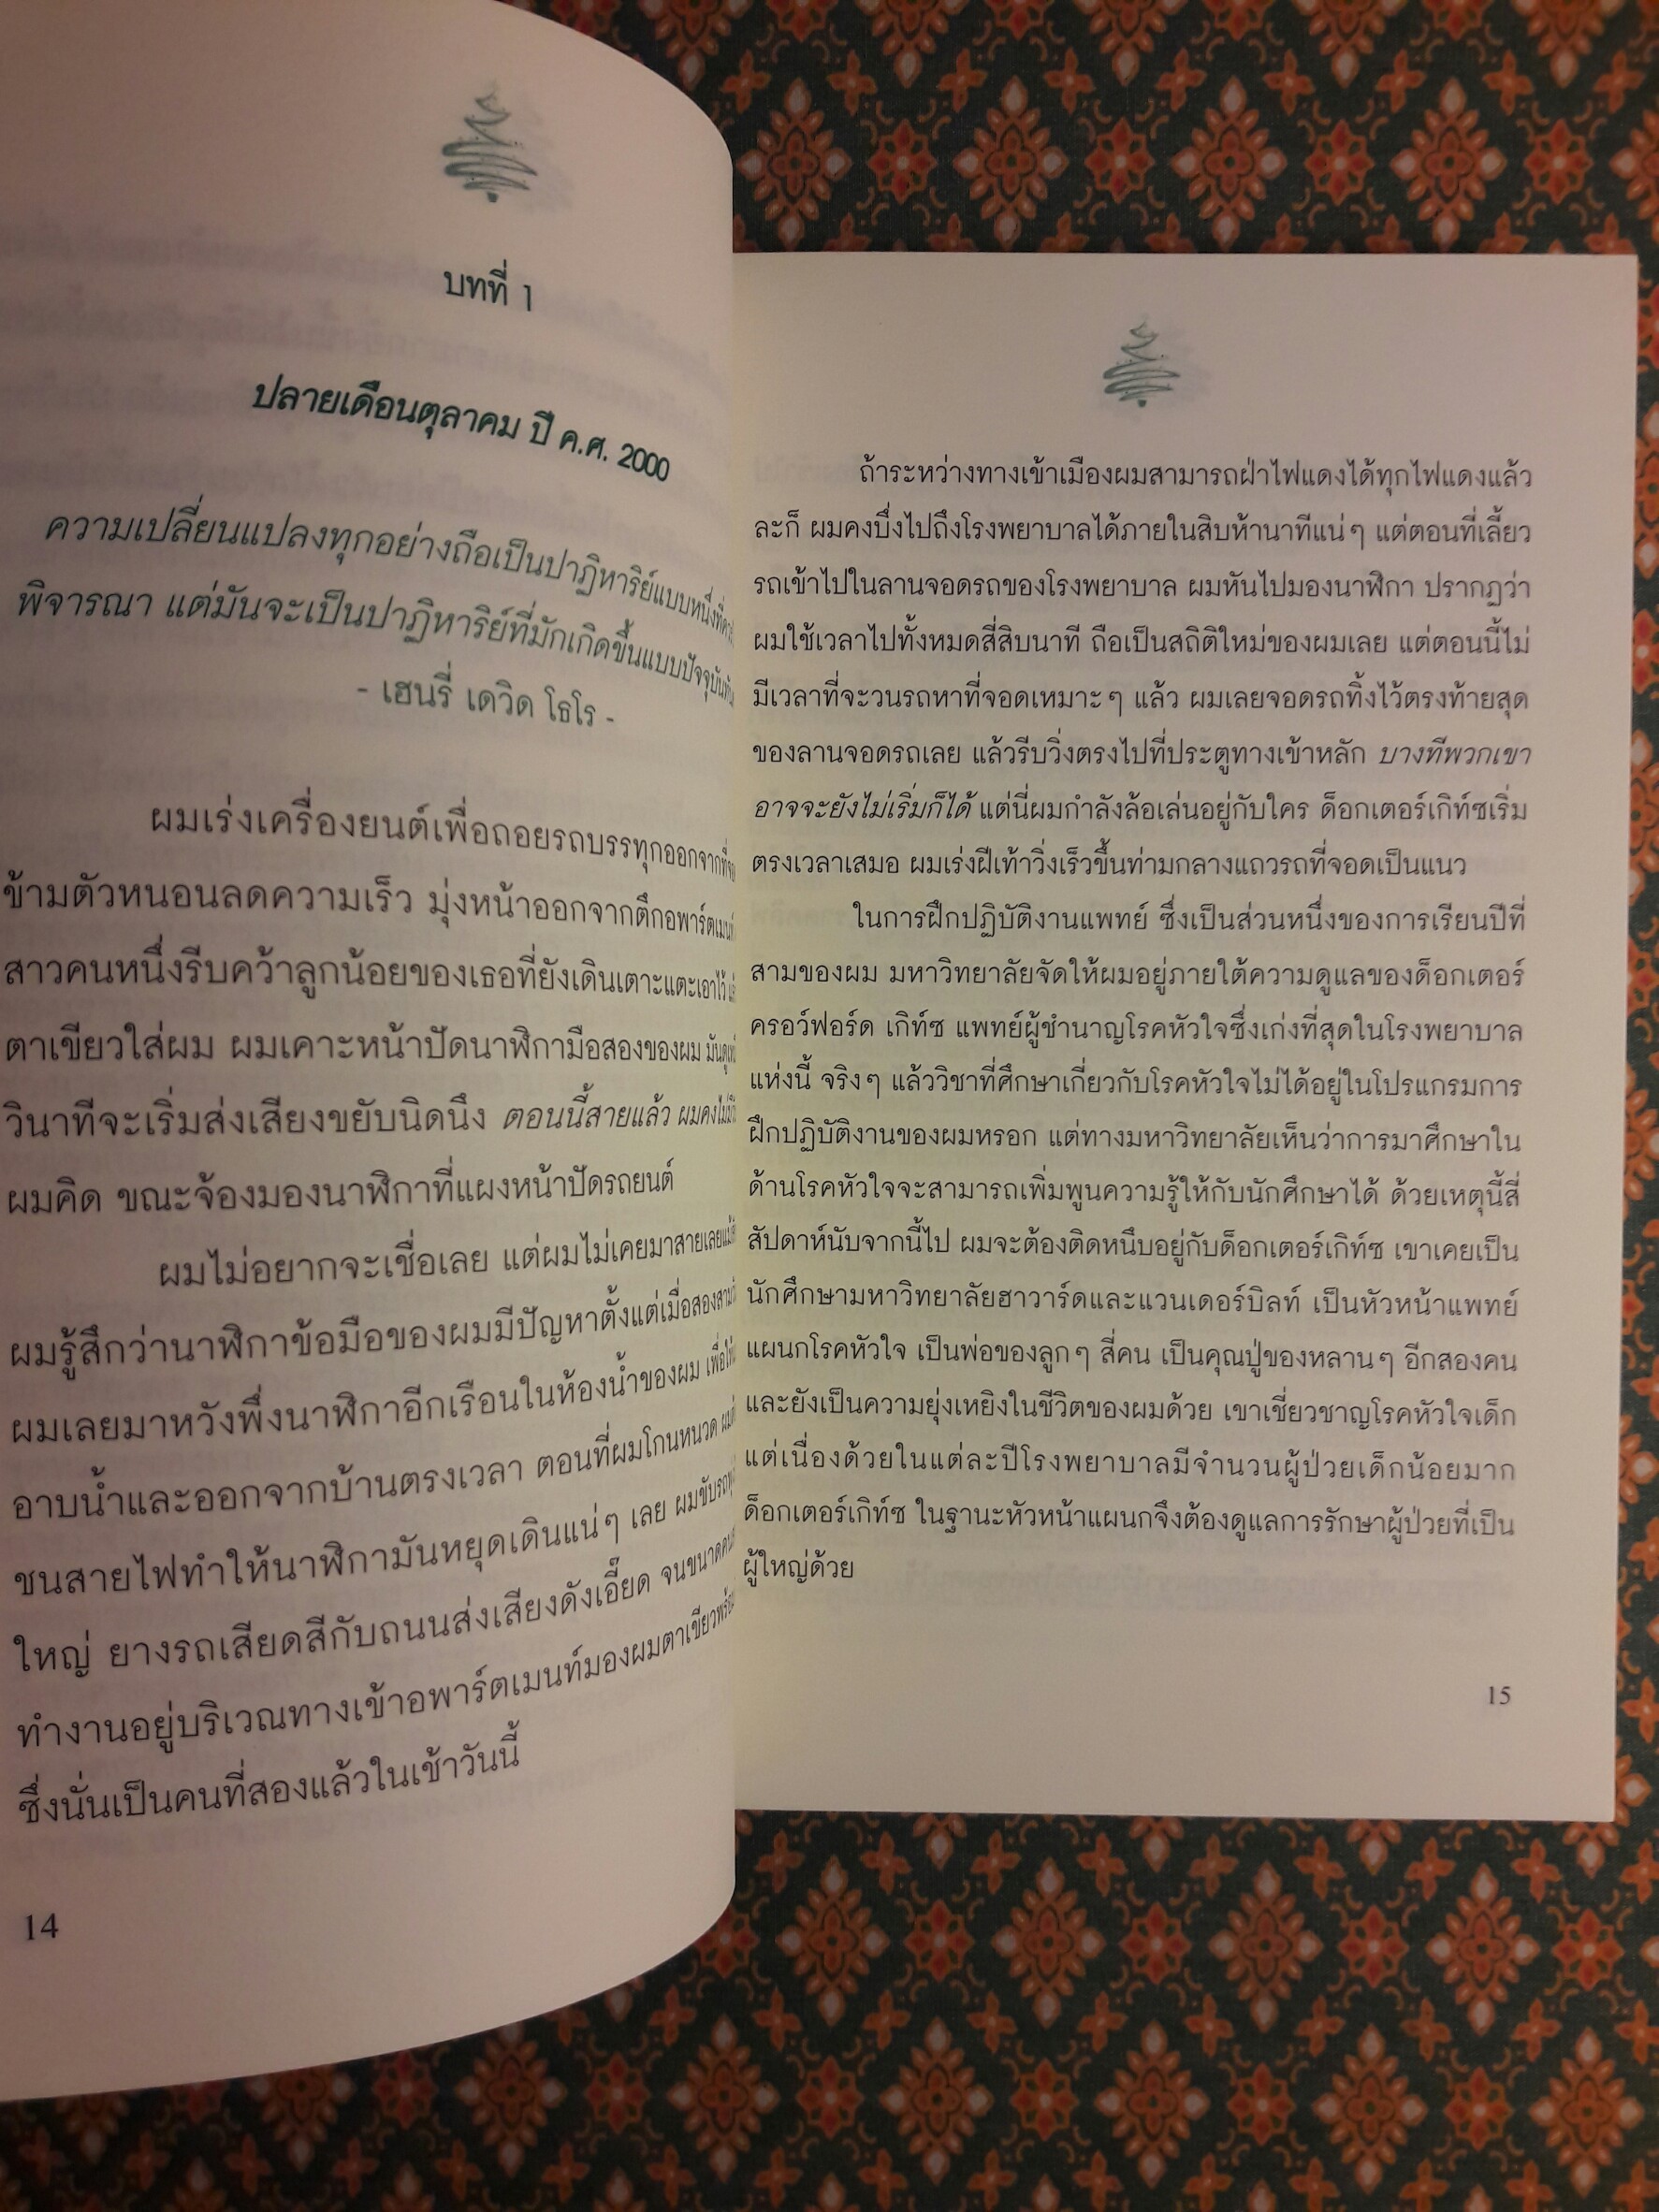 บทที่ 1
ปลายเดือนตุลาคม ปี ค.ศ. 2000
ความเปลี่ยนแปลงทุกอย่างถือเป็นปาฏิหาริย์แบบหนึ่งที่ควร
พิจารณา แต่มันจะเป็นปาฏิหาริย์ที่มักเกิดขึ้นแบบปัจจุบันทันด่วน
- เฮนรี่ เดวิด โธโร -
ผมเร่งเครื่องยนต์เพื่อถอยรถบรรทุกออกจากที่จอด
ข้ามตัวหนอนลดความเร็ว มุ่งหน้าออกจากตึกอพาร์ตเมนท์
สาวคนหนึ่งรีบคว้าลูกน้อยของเธอที่ยังเดินเตาะแตะเอาไว้
ตาเขียวใส่ผม ผมเคาะหน้าปัดนาฬิกามือสองของผม
วินาทีจะเริ่มส่งเสียงขยับนิดนึง ตอนนี้สายแล้ว ผมคงไม่มี
ผมคิด ขณะจ้องมองนาฬิกาที่แผงหน้าปัดรถยนต์
ผมไม่อยากจะเชื่อเลย แต่ผมไม่เคยมาสายเลย
ผมรู้สึกว่านาฬิกาข้อมือของผมมีปัญหาตั้งแต่เมื่อสองสาม
ผมเลยมาหวังพึ่งนาฬิกาอีกเรือนในห้องน้ำของผม เพื่อให้
อาบน้ำและออกจากบ้านตรงเวลา ตอนที่ผมโกนหนวด
ชนสายไฟทำให้นาฬิกามันหยุดเดินแน่ๆ เลย ผมขับรถ
ใหญ่ ยางรถเสียดสีกับถนนส่งเสียงดังเอี๊ยด จนขนาด
ทำงานอยู่บริเวณทางเข้าอพาร์ตเมนท์มองผมตาเขียว
ซึ่งนั่นเป็นคนที่สองแล้วในเช้าวันนี้
14
ถ้าระหว่างทางเข้าเมืองผมสามารถฝ่าไฟแดงได้ทุกไฟแดงแล้ว
ละก็ ผมคงบึ่งไปถึงโรงพยาบาลได้ภายในสิบห้านาทีแน่ๆ แต่ตอนที่เลี้ยว
รถเข้าไปในลานจอดรถของโรงพยาบาล ผมหันไปมองนาฬิกา ปรากฏว่า
ผมใช้เวลาไปทั้งหมดสี่สิบนาที ถือเป็นสถิติใหม่ของผมเลย แต่ตอนนี้ไม่
มีเวลาที่จะวนรถหาที่จอดเหมาะๆ แล้ว ผมเลยจอดรถทิ้งไว้ตรงท้ายสุด
ของลานจอดรถเลย แล้วรีบวิ่งตรงไปที่ประตูทางเข้าหลัก บางทีพวกเขา
อาจจะยังไม่เริ่มก็ได้ แต่นี่ผมกำลังล้อเล่นอยู่กับใคร ด็อกเตอร์เกิท์ซเริ่ม
ตรงเวลาเสมอ ผมเร่งฝีเท้าวิ่งเร็วขึ้นท่ามกลางแถวรถที่จอดเป็นแนว
ในการฝึกปฏิบัติงานแพทย์ ซึ่งเป็นส่วนหนึ่งของการเรียนปีที่
สามของผม มหาวิทยาลัยจัดให้ผมอยู่ภายใต้ความดูแลของด็อกเตอร์
ครอว์ฟอร์ด เกิท์ซ แพทย์ผู้ชำนาญโรคหัวใจซึ่งเก่งที่สุดในโรงพยาบาล
แห่งนี้ จริงๆ แล้ววิชาที่ศึกษาเกี่ยวกับโรคหัวใจไม่ได้อยู่ในโปรแกรมการ
ฝึกปฏิบัติงานของผมหรอก แต่ทางมหาวิทยาลัยเห็นว่าการมาศึกษาใน
ด้านโรคหัวใจจะสามารถเพิ่มพูนความรู้ให้กับนักศึกษาได้ ด้วยเหตุนี้สี่
สัปดาห์นับจากนี้ไป ผมจะต้องติดหนึบอยู่กับด็อกเตอร์เกิท์ซ เขาเคยเป็น
นักศึกษามหาวิทยาลัยฮาวาร์ดและแวนเดอร์บิลท์ เป็นหัวหน้าแพทย์
แผนกโรคหัวใจ เป็นพ่อของลูกๆ สี่คน เป็นคุณปู่ของหลานๆ อีกสองคน
และยังเป็นความยุ่งเหยิงในชีวิตของผมด้วย เขาเชี่ยวชาญโรคหัวใจเด็ก
แต่เนื่องด้วยในแต่ละปีโรงพยาบาลมีจำนวนผู้ป่วยเด็กน้อยมาก
ด็อกเตอร์เกิท์ซ ในฐานะหัวหน้าแผนกจึงต้องดูแลการรักษาผู้ป่วยที่เป็น
ผู้ใหญ่ด้วย
15